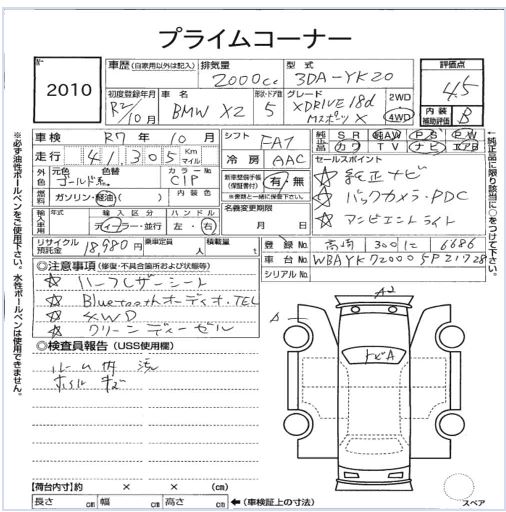 プライムコーナー
No.
2010
車歴(自家用以外は記入) 排気量 2000cc 型式 3DA-YK20
評価点 4.5
初度登録年月 R2/10月 車名 BMW X2 形状・ドア数 5 グレード XDRIVE 18d MスポーツX 2WD 4WD
内装補助評価 B
車検 R7年10月 シフト FAT
純正品 SR AW PS PW カワ TV ナビ エアB
走行 41,305 Km マイル
冷房 AAC
セールスポイント
外色 元色 ゴールド系 色替 カラーNo C1P
新車整備手帳(保証書付) 有・無
☆ 純正ナビ
燃料 ガソリン・軽油( ) 内装色
※書類と一緒に保管下さい。
☆ バックカメラ・PDC
輸入車用 年式 輸入区分 ディーラー・並行 ハンドル 左・右
名義変更期限 月 日
☆ アンビエントライト
リサイクル預託金 18,980円 乗車定員 人 積載量 t
登録No. 高崎 300 に 6686
車台No. WBAYK720005P21728
シリアルNo.
◎注意事項(修復・不具合箇所および状態等)
☆ ハーフレザーシート
☆ Bluetoothオーディオ・TEL
☆ 4WD
☆ クリーンディーゼル
◎検査員報告(USS使用欄)
ルーム内 汚
ホイル キズ
A2
A
トビA
【荷台内寸】約 × × (cm)
長さ cm 幅 cm 高さ cm ←(車検証上の寸法)
スペア
※必ず油性ボールペンをご使用下さい。水性ボールペンは使用できません。
←純正品に限り該当に○をつけて下さい。